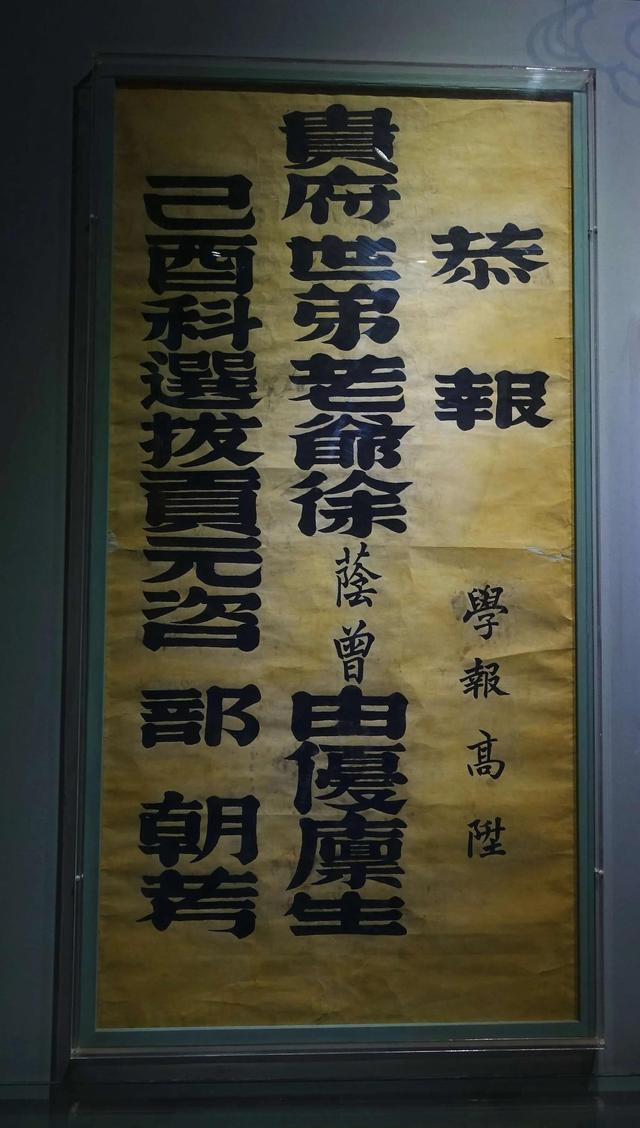 恭報 學報高陞
貴府世弟老爺徐蔭曾由優廩生
己酉科選拔貢元咨部朝考